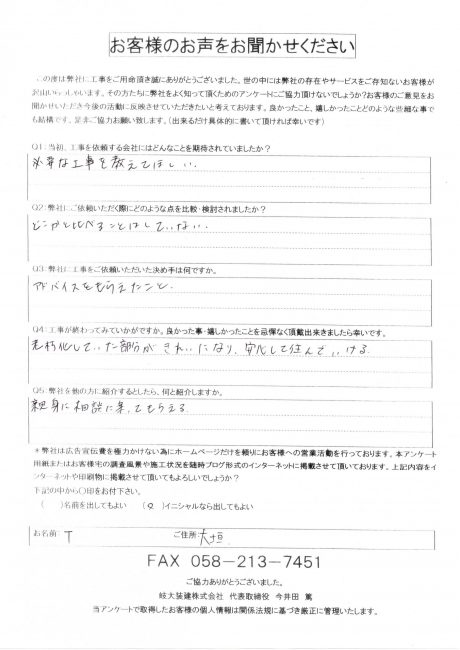 お客様のお声をお聞かせください
この度は弊社に工事をご用命頂き誠にありがとうございました。世の中には弊社の存在やサービスをご存知ないお客様が
沢山いらっしゃいます。その方たちに弊社をよく知って頂くためのアンケートにご協力頂けないでしょうか?お客様のご意見をお
聞かせいただき今後の活動に反映させていただきたいと考えております。良かったこと、嬉しかったことどのような些細な事で
も結構です。是非ご協力お願い致します。(出来るだけ具体的に書いて頂ければ幸いです)
Q1:当初、工事を依頼する会社にはどんなことを期待されていましたか?
必要な工事を教えてほしい。
Q2:弊社にご依頼いただく際にどのような点を比較・検討されましたか?
どこかと比べることはしていない。
Q3:弊社に工事をご依頼いただいた決め手は何ですか。
アドバイスをもらえたこと。
Q4:工事が終わってみていかがですか。良かった事・嬉しかったことを忌憚なく頂戴出来きましたら幸いです。
老朽化していた部分がきれいになり、安心して住んでいける。
Q5:弊社を他の方に紹介するとしたら、何と紹介しますか。
親身に相談に乗ってもらえる。
＊弊社は広告宣伝費を極力かけない為にホームページだけを頼りにお客様への営業活動を行っております。本アンケート
用紙またはお客様宅の調査風景や施工状況を随時ブログ形式のインターネットに掲載させて頂いております。上記内容をイ
ンターネットや印刷物に掲載させて頂いてもよろしいでしょうか?
下記の中から〇印をお付下さい。
( )名前を出してもよい ( )イニシャルなら出してもよい
お名前: T ご住所: 大垣
FAX 058-213-7451
ご協力ありがとうございました。
岐大装建株式会社 代表取締役 今井田 篤
当アンケートで取得したお客様の個人情報は関係法規に基づき厳正に管理いたします。